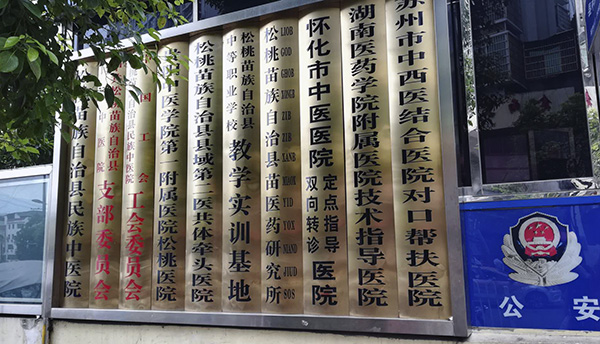 苗族自治县民族中医院
苗族自治县
中医院
支部委员会
国工会
自治县民族中医院
工会委员会
中医学院第一附属医院松桃医院
松桃苗族自治县县域第二医共体牵头医院
松桃苗族自治县
中等职业学校
教学实训基地
松桃苗族自治县苗医药研究所
LIOB GOD GHOB ZIB ZIB XANB YID YOX NIAND JIUD SOS
怀化市中医医院
定点指导
双向转诊
医院
湖南医药学院附属医院技术指导医院
苏州市中西医结合医院对口帮扶医院
公安